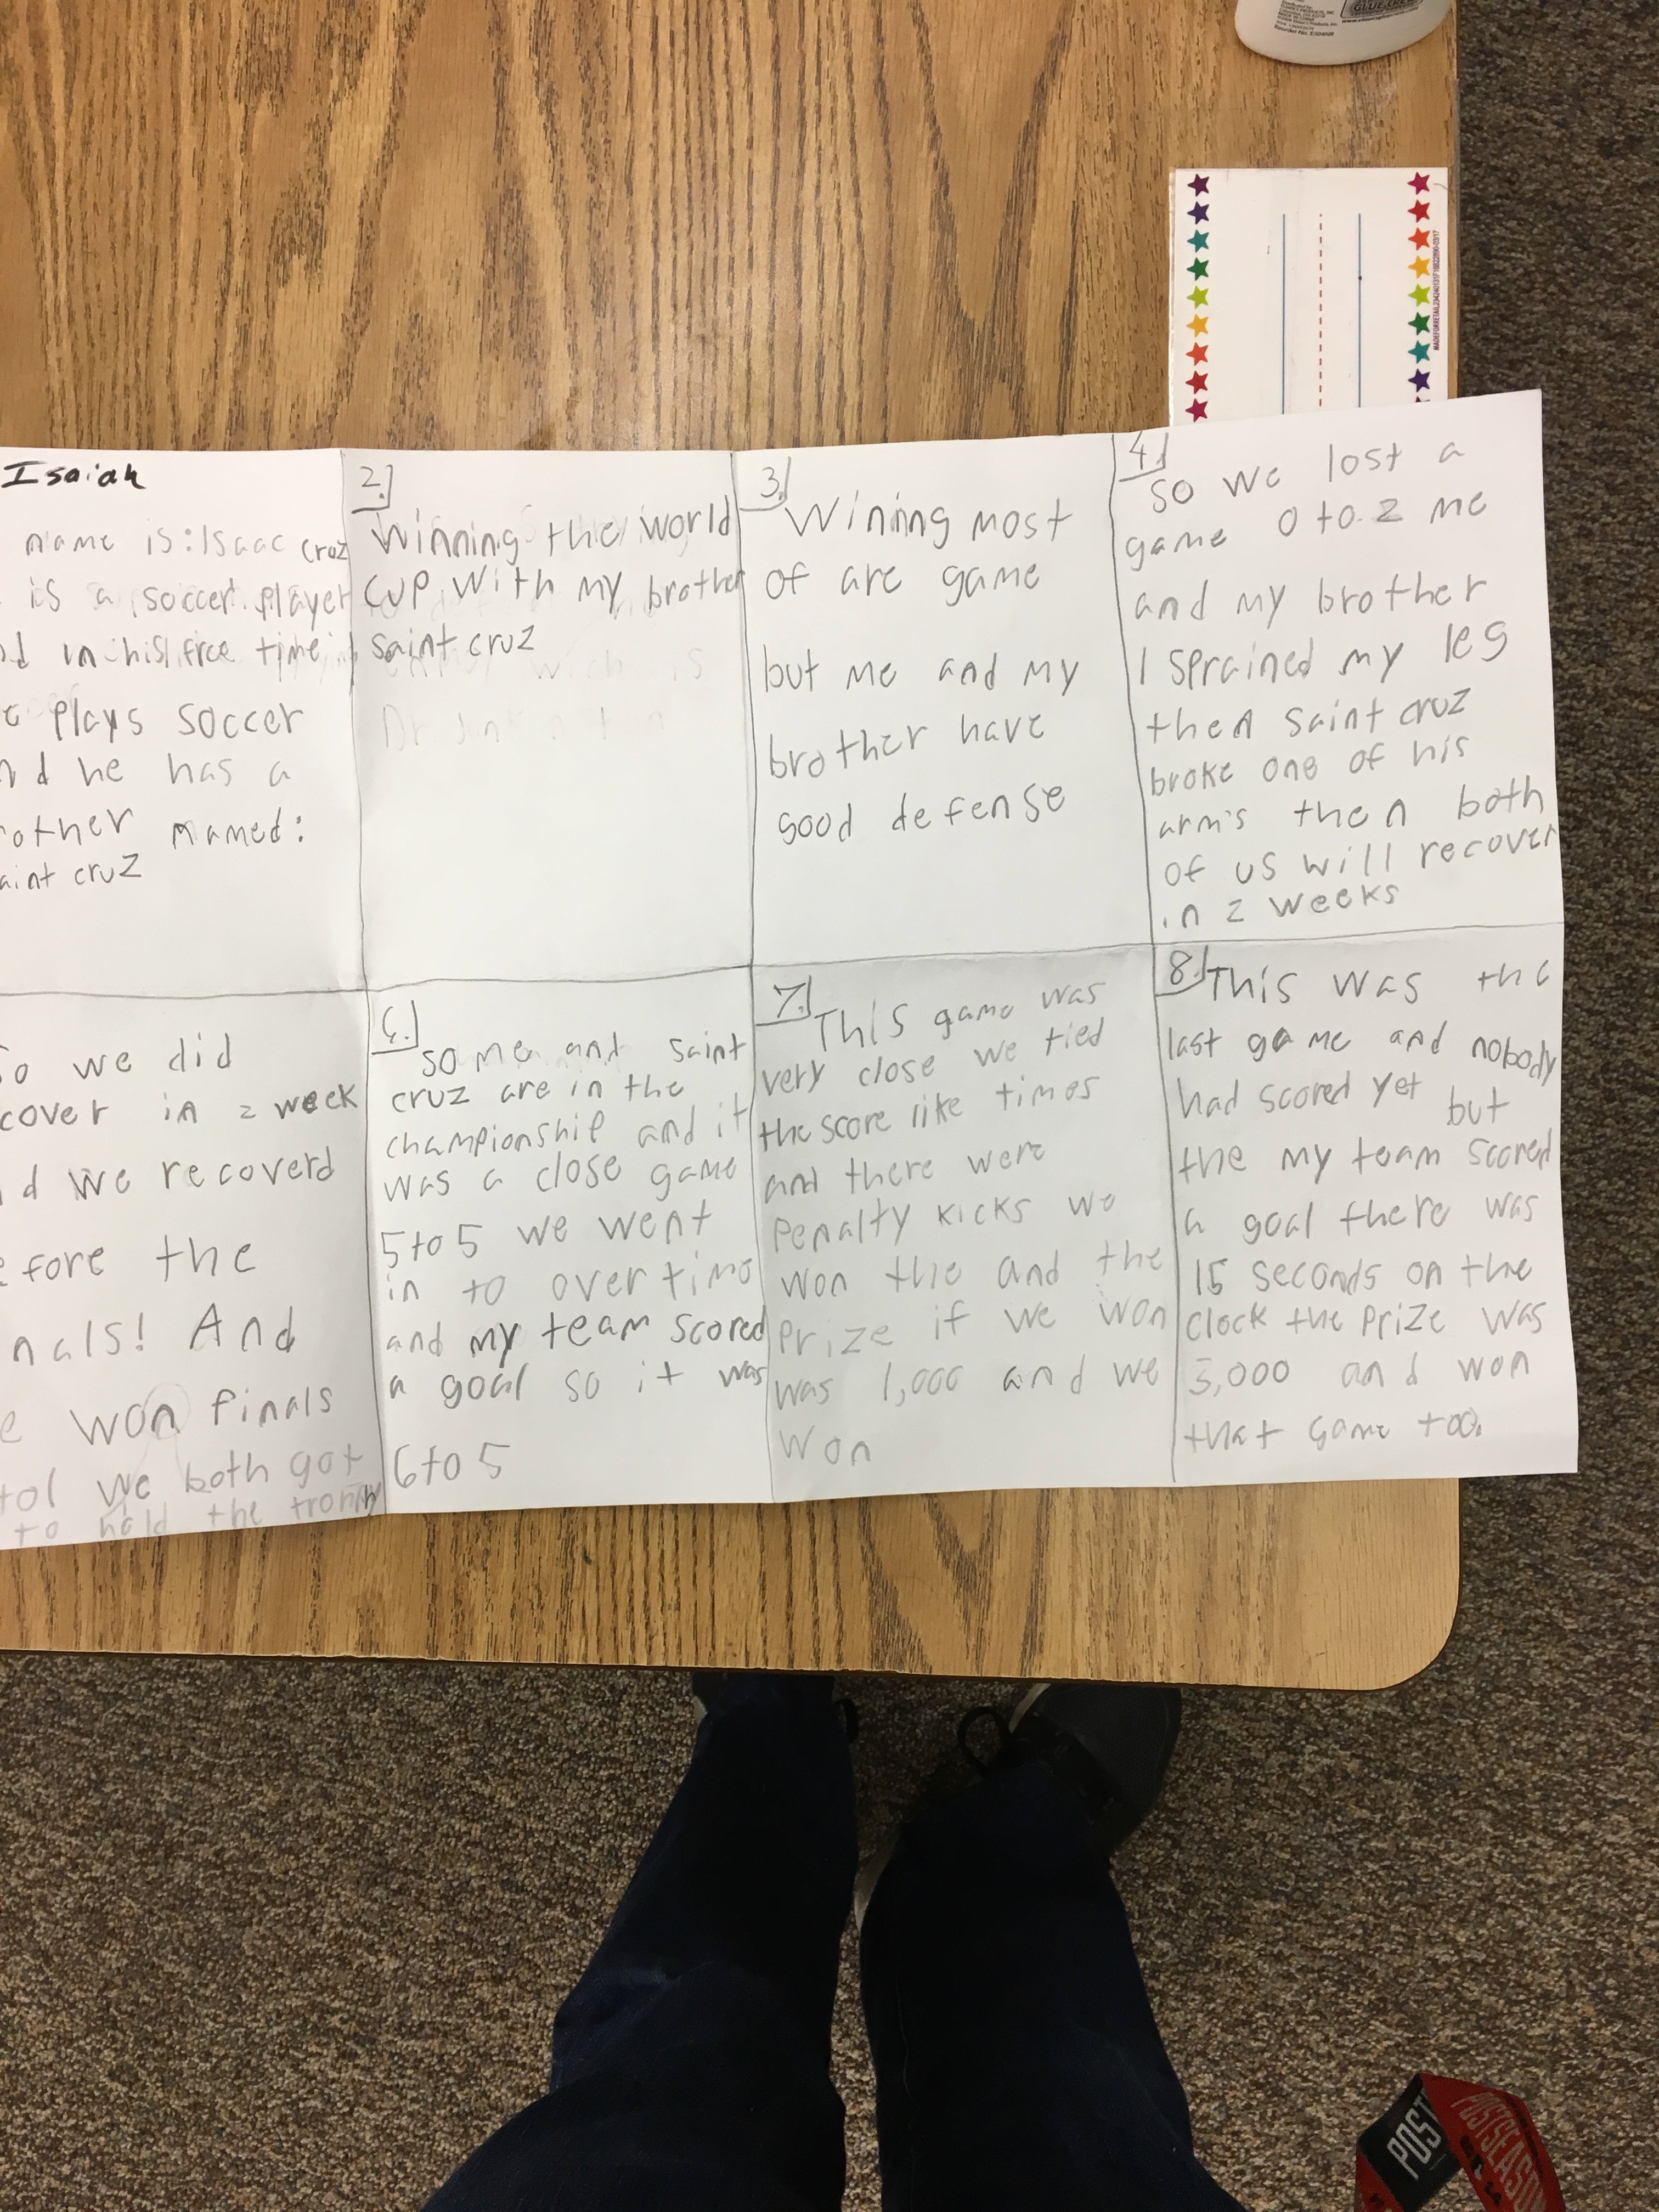 Isaiah
name is: Isaac cruz
is a soccer player
in his free time
plays soccer
he has a
named:
cruz
2.
Winning the world
cup with my brother
saint cruz
3.
Wining most
of are game
but me and my
brother have
good defense
4.
so we lost a
game 0 to 2 me
and my brother
I sprained my leg
then saint cruz
broke one of his
arm's then both
of us will recover
in 2 weeks
we did
in 2 week
we recoverd
the
And
won finals
we both got
to hold the
6.
so me and saint
cruz are in the
championship and it
was a close game
5 to 5 we went
in to over time
and my team scored
a goal so it was
6 to 5
7.
This game was
very close we tied
the score like times
and there were
Penalty kicks we
won the and the
prize if we won
was 1,000 and we
won
8.
This was the
last game and nobody
had scored yet but
the my team scored
a goal there was
15 seconds on the
clock the prize was
3,000 and won
that game too.
MADE FOR RETAIL
POST
POSTSEASON